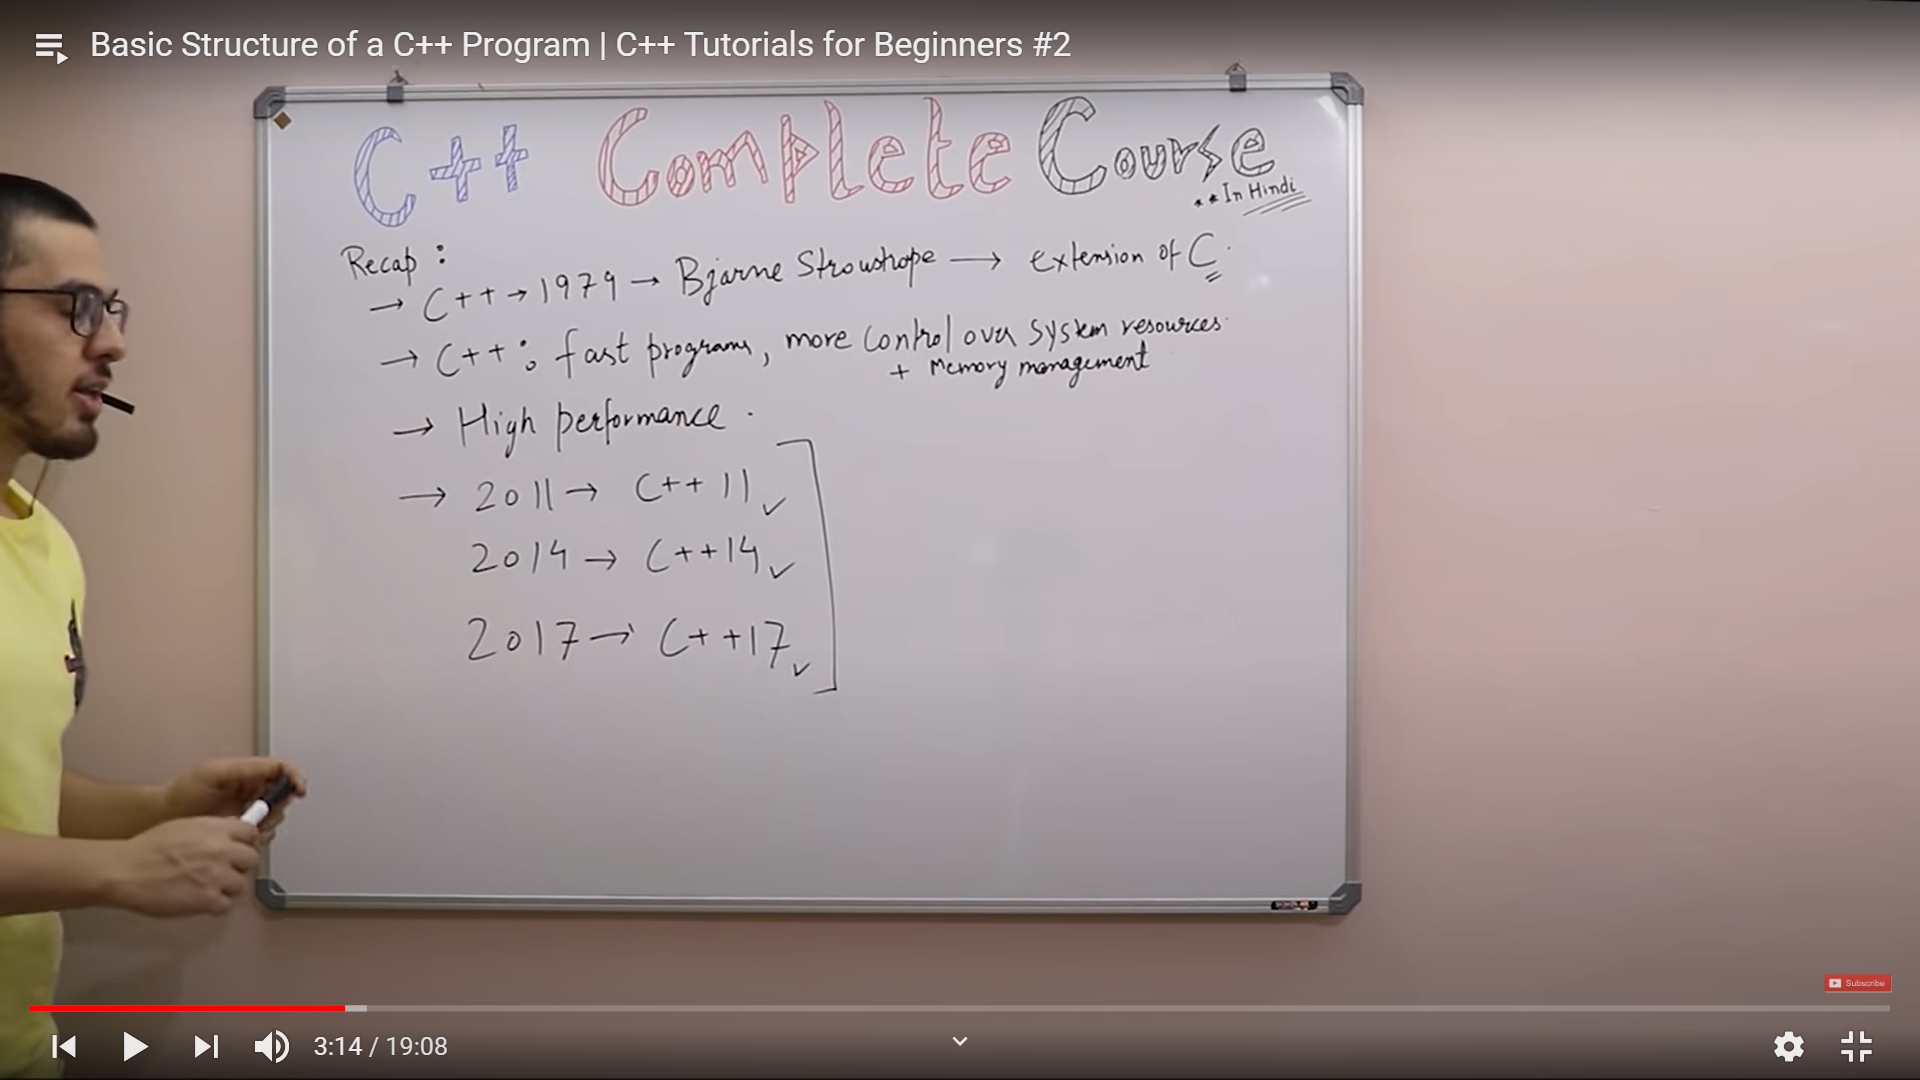 Basic Structure of a C++ Program | C++ Tutorials for Beginners #2
C++ Complete Course
**In Hindi
Recap :
→ C++ → 1979 → Bjarne Stroustrope → extension of C.
→ C++ : fast programs, more control over system resources.
+ Memory management
→ High performance .
→ 2011 → C++ 11 ✓
2014 → C++14 ✓
2017 → C++17 ✓
Subscribe
3:14 / 19:08